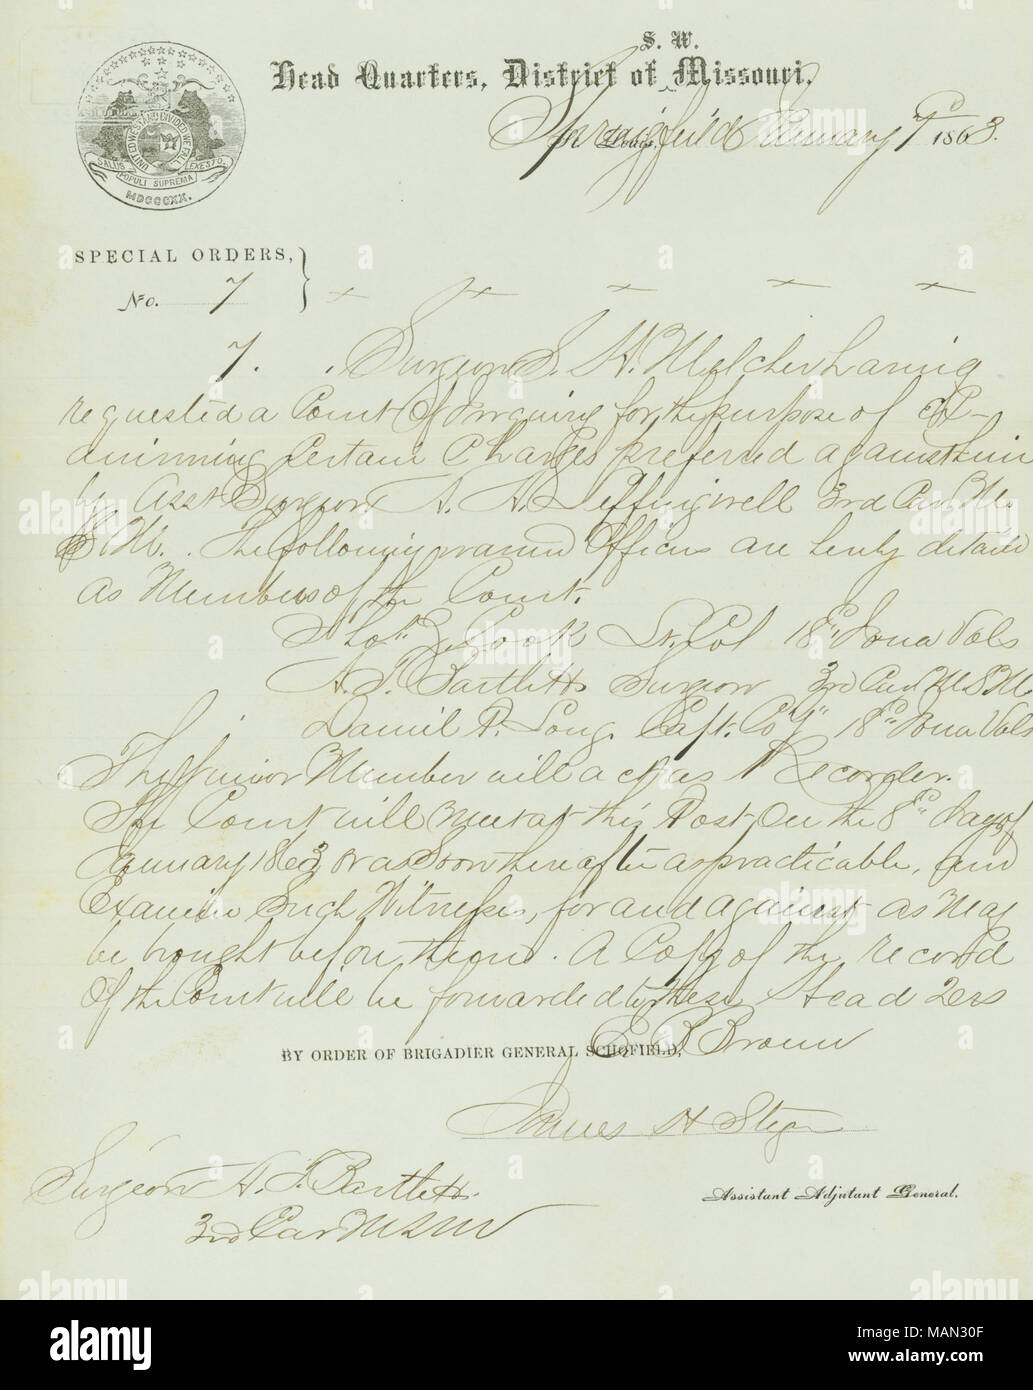 S. W.
Head Quarters, District of Missouri,
Springfield January 7th 1863.
UNITED WE STAND DIVIDED WE FALL
SALUS POPULI SUPREMA LEX ESTO
MDCCCXX.
SPECIAL ORDERS,
No. 7
7. Surgeon S. H. Melcher having
requested a Court Of Inquiry for the purpose of Ex-
aminning Certain Charges preferred against him
by Asst Surgeon A. H. Leffingwell 3rd Cav M.
S. M. The following named Officers are herby detaild
as Members of the Court.
Thos. Z. Cook Lt. Col 18th Iowa Vols
A. T. Bartlett Surgeon 3rd Cav M S M
Daniel R. Long. Capt. Co 18th Iowa Vols
The Junior Member will act as Recorder.
The Court will Meet at this Post On the 8th Day of
January 1863 or as Soon thereafter as practicable, and
Examine Such Witnesses, for and against as May
be brought before them. A Copy of the record
Of the Court will be forwarded to these Head Qrs
E B Brown
BY ORDER OF BRIGADIER GENERAL SCHOFIELD,
James H Steger
Assistant Adjutant General.
Surgeon A. T. Bartlett.
3rd Cav M S M
alamy
Image ID: MAN30F
www.alamy.com